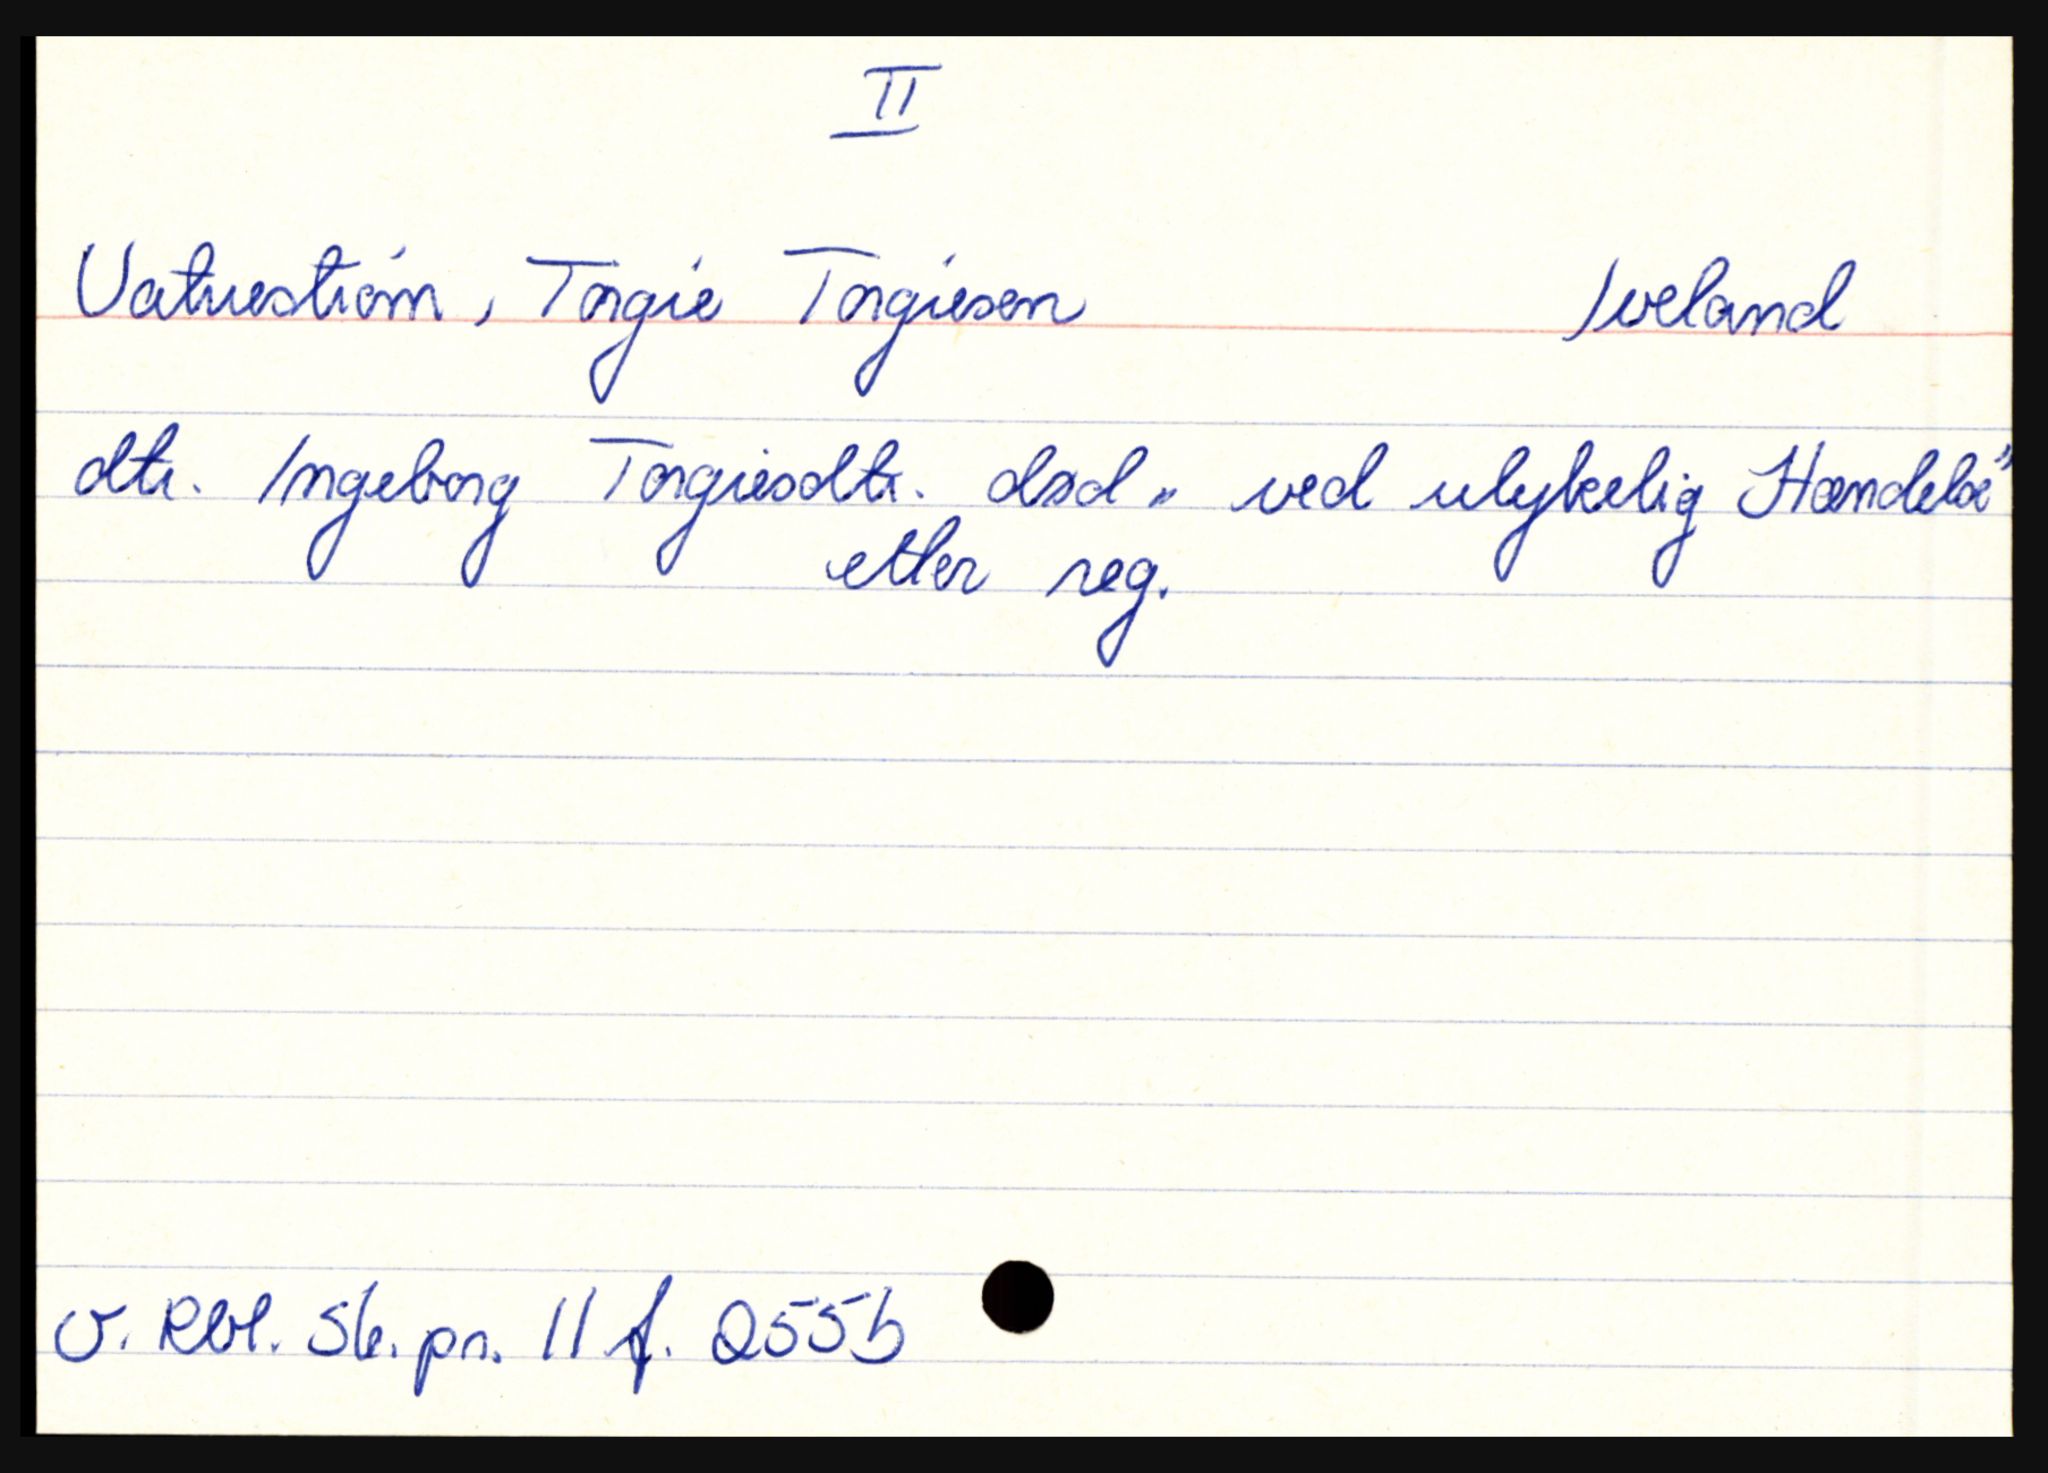 II
Vatnestrøm, Torgie Torgiesen Iveland
dtr. Ingeborg Torgiesdtr. død „ ved ulykelig Hændelse"
etter reg.
v. Rbl. Sk. pr. 11 f. 255b